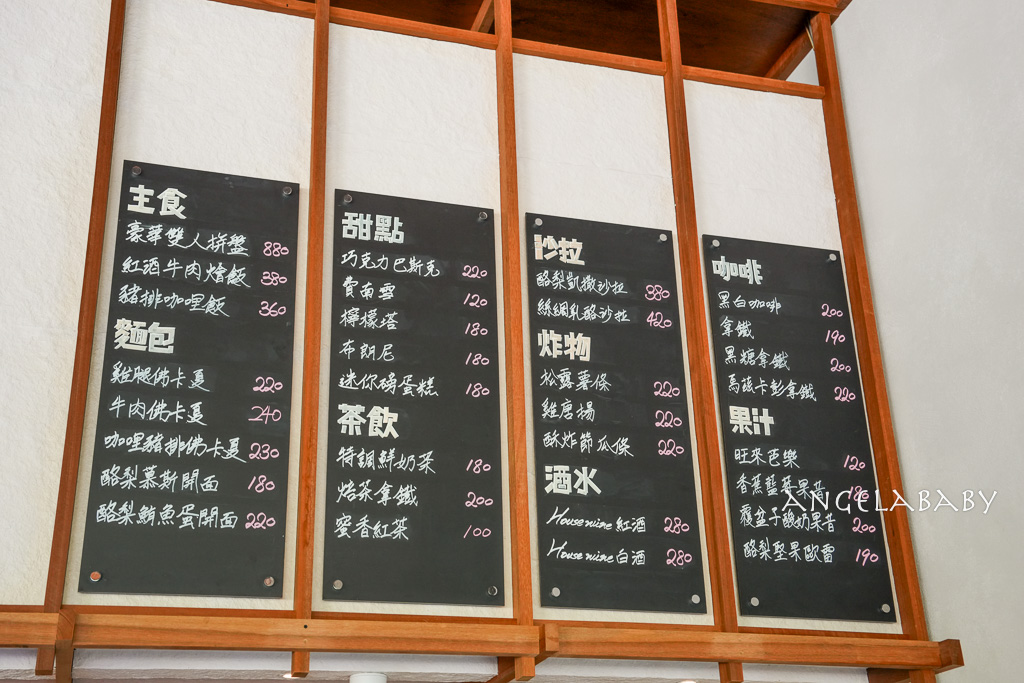 主食
豪華雙人拼盤 880
紅酒牛肉燴飯 380
豬排咖哩飯 360
麵包
雞腿佛卡夏 220
牛肉佛卡夏 240
咖哩豬排佛卡夏 230
酪梨慕斯開面 180
酪梨鮪魚蛋開面 220
甜點
巧克力巴斯克 220
費南雪 120
檸檬塔 180
布朗尼 180
迷你磅蛋糕 180
茶飲
特調鮮奶茶 180
焙茶拿鐵 200
蜜香紅茶 100
沙拉
酪梨凱撒沙拉 380
絲綢乳酪沙拉 420
炸物
松露薯條 220
雞唐揚 220
酥炸節瓜條 220
酒水
House wine 紅酒 280
House wine 白酒 280
咖啡
黑白咖啡 200
拿鐵 190
黑糖拿鐵 200
馬薩卡彭拿鐵 220
果汁
旺來芭樂 120
香蕉藍莓果昔 180
覆盆子酸奶果昔 200
酪梨堅果歐蕾 190
ANGELABABY